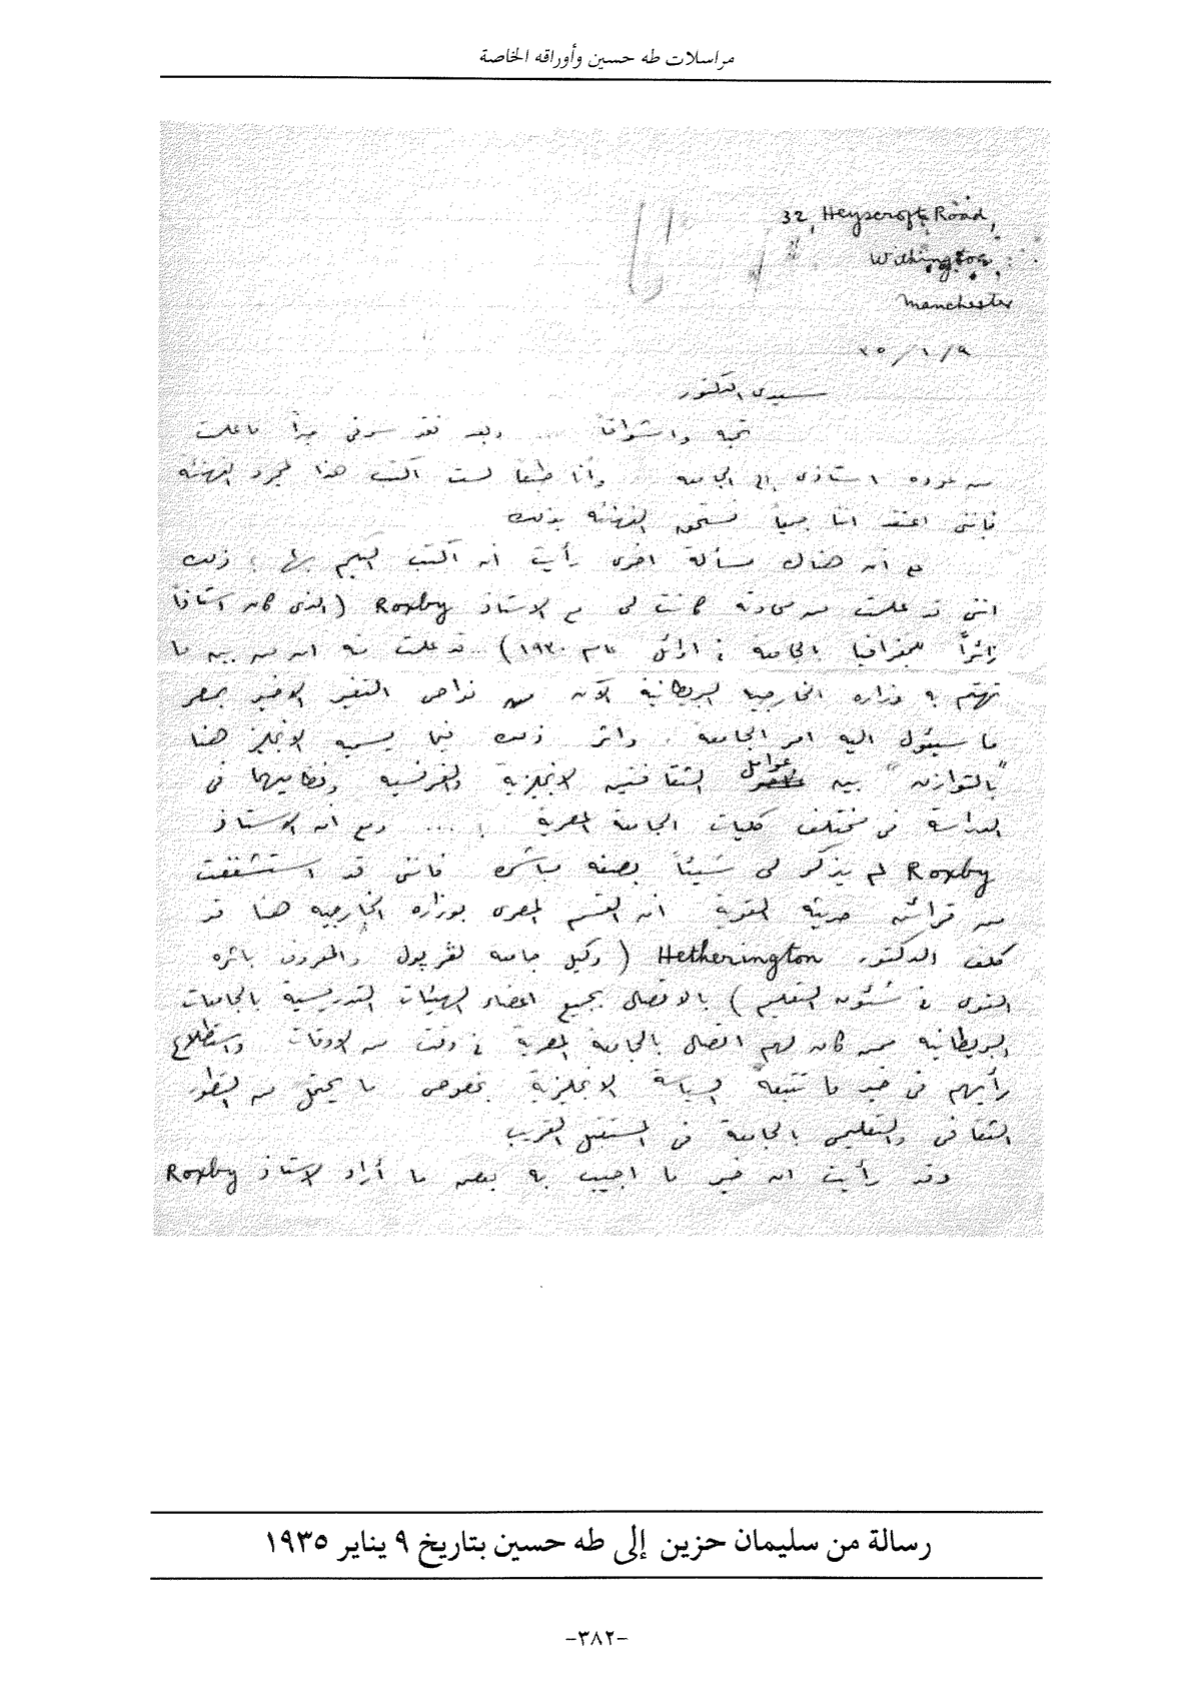 مراسلات طه حسين وأوراقه الخاصة
32, Heyscroft Road,
Withington,
Manchester
٩/١/٣٥
سيدى الدكتور
تحية واشواقاً ... وبعد فقد سرنى جداً ما علمت
من عودة استاذى إلى الجامعة وأنا طبعاً لست اكتب هذا لمجرد التهنئة
فإننى اعتقد اننا جميعاً نستحق التهنئة بذلك
مع أن هناك مسألة اخرى رأيت أن أكتب اليكم بها ؛ ذلك
اننى قد علمت من محادثة كانت لى مع الاستاذ Roxby (الذى كان استاذاً
زائراً للجغرافيا بالجامعة فى اوائل عام ١٩٣٠) قد علمت منه ان من بين ما
تهتم به وزارة الخارجية البريطانية الآن من نواحى التغير الاخير بمصر
ما سيئول اليه امر الجامعة . واثر ذلك فيما يسميه الانجليز هنا
"بالتوازن" بين عوامل الثقافتين الانجليزية والفرنسية ونظاميهما فى
الدراسة فى مختلف كليات الجامعة المصرية ! .... ومع ان الاستاذ
Roxby لم يذكر لى شيئاً بصفة مباشرة فاننى قد استشففت
من قرائن حديثه القوية ان القسم المصرى بوزارة الخارجية هنا قد
كلف الدكتور Hetherington (وكيل جامعة لفربول والمعروف باثره
القوى فى شئون التعليم) بالاتصال بجميع اعضاء الهيئات التدريسية بالجامعات
البريطانية ممن كان لهم اتصال بالجامعة المصرية فى وقت من الاوقات واستطلاع
رأيهم فى خير ما تتبعه السياسة الانجليزية بخصوص ما يحتمل من التطور
الثقافى والتعليمى بالجامعة فى المستقبل القريب
وقد رأيت ان خير ما اجيب به بعض ما أراد الاستاذ Roxby
رسالة من سليمان حزين إلى طه حسين بتاريخ ٩ يناير ١٩٣٥
-٣٨٢-